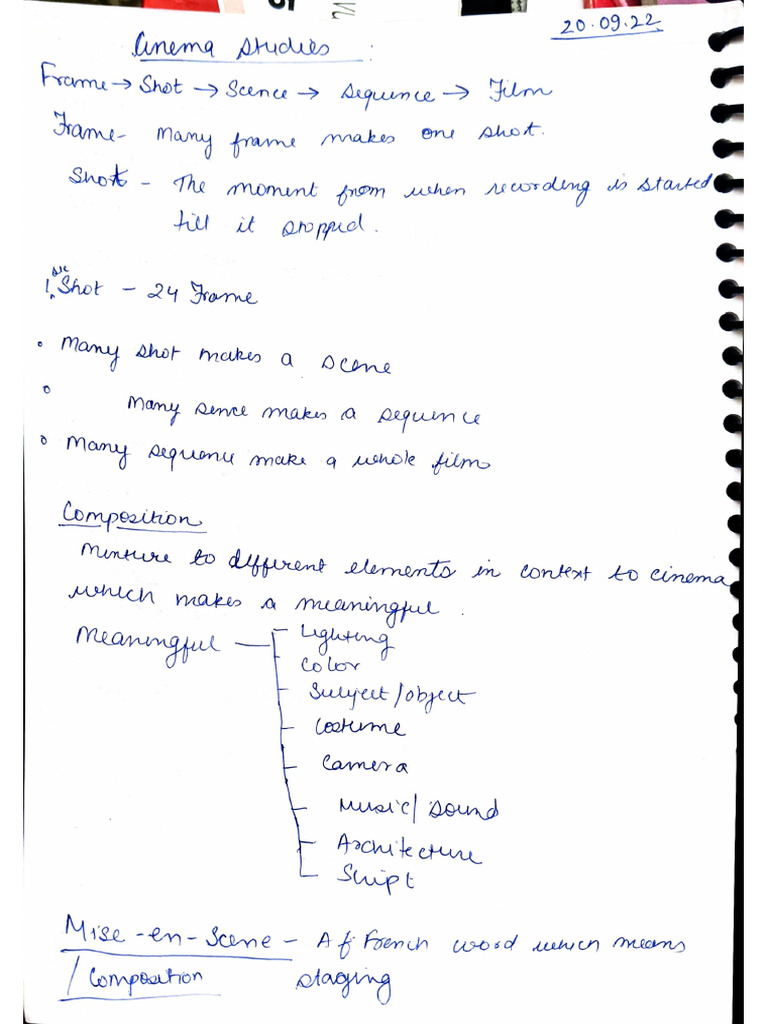 20.09.22
Cinema Studies :
Frame → Shot → Scence → Sequence → Film
Frame - Many frame makes one shot.
Shot - The moment from when recording is started
till it stopped.
1 sec Shot - 24 Frame
• Many shot makes a scene
• Many sence makes a sequence
• Many sequence make a whole film
Composition
Mixture to different elements in context to cinema
which makes a meaningful.
Meaningful - Lighting
Color
Subject/object
Costume
Camera
Music/sound
Architecture
Script
Mise-en-Scene - A f French word which means
/Composition staging